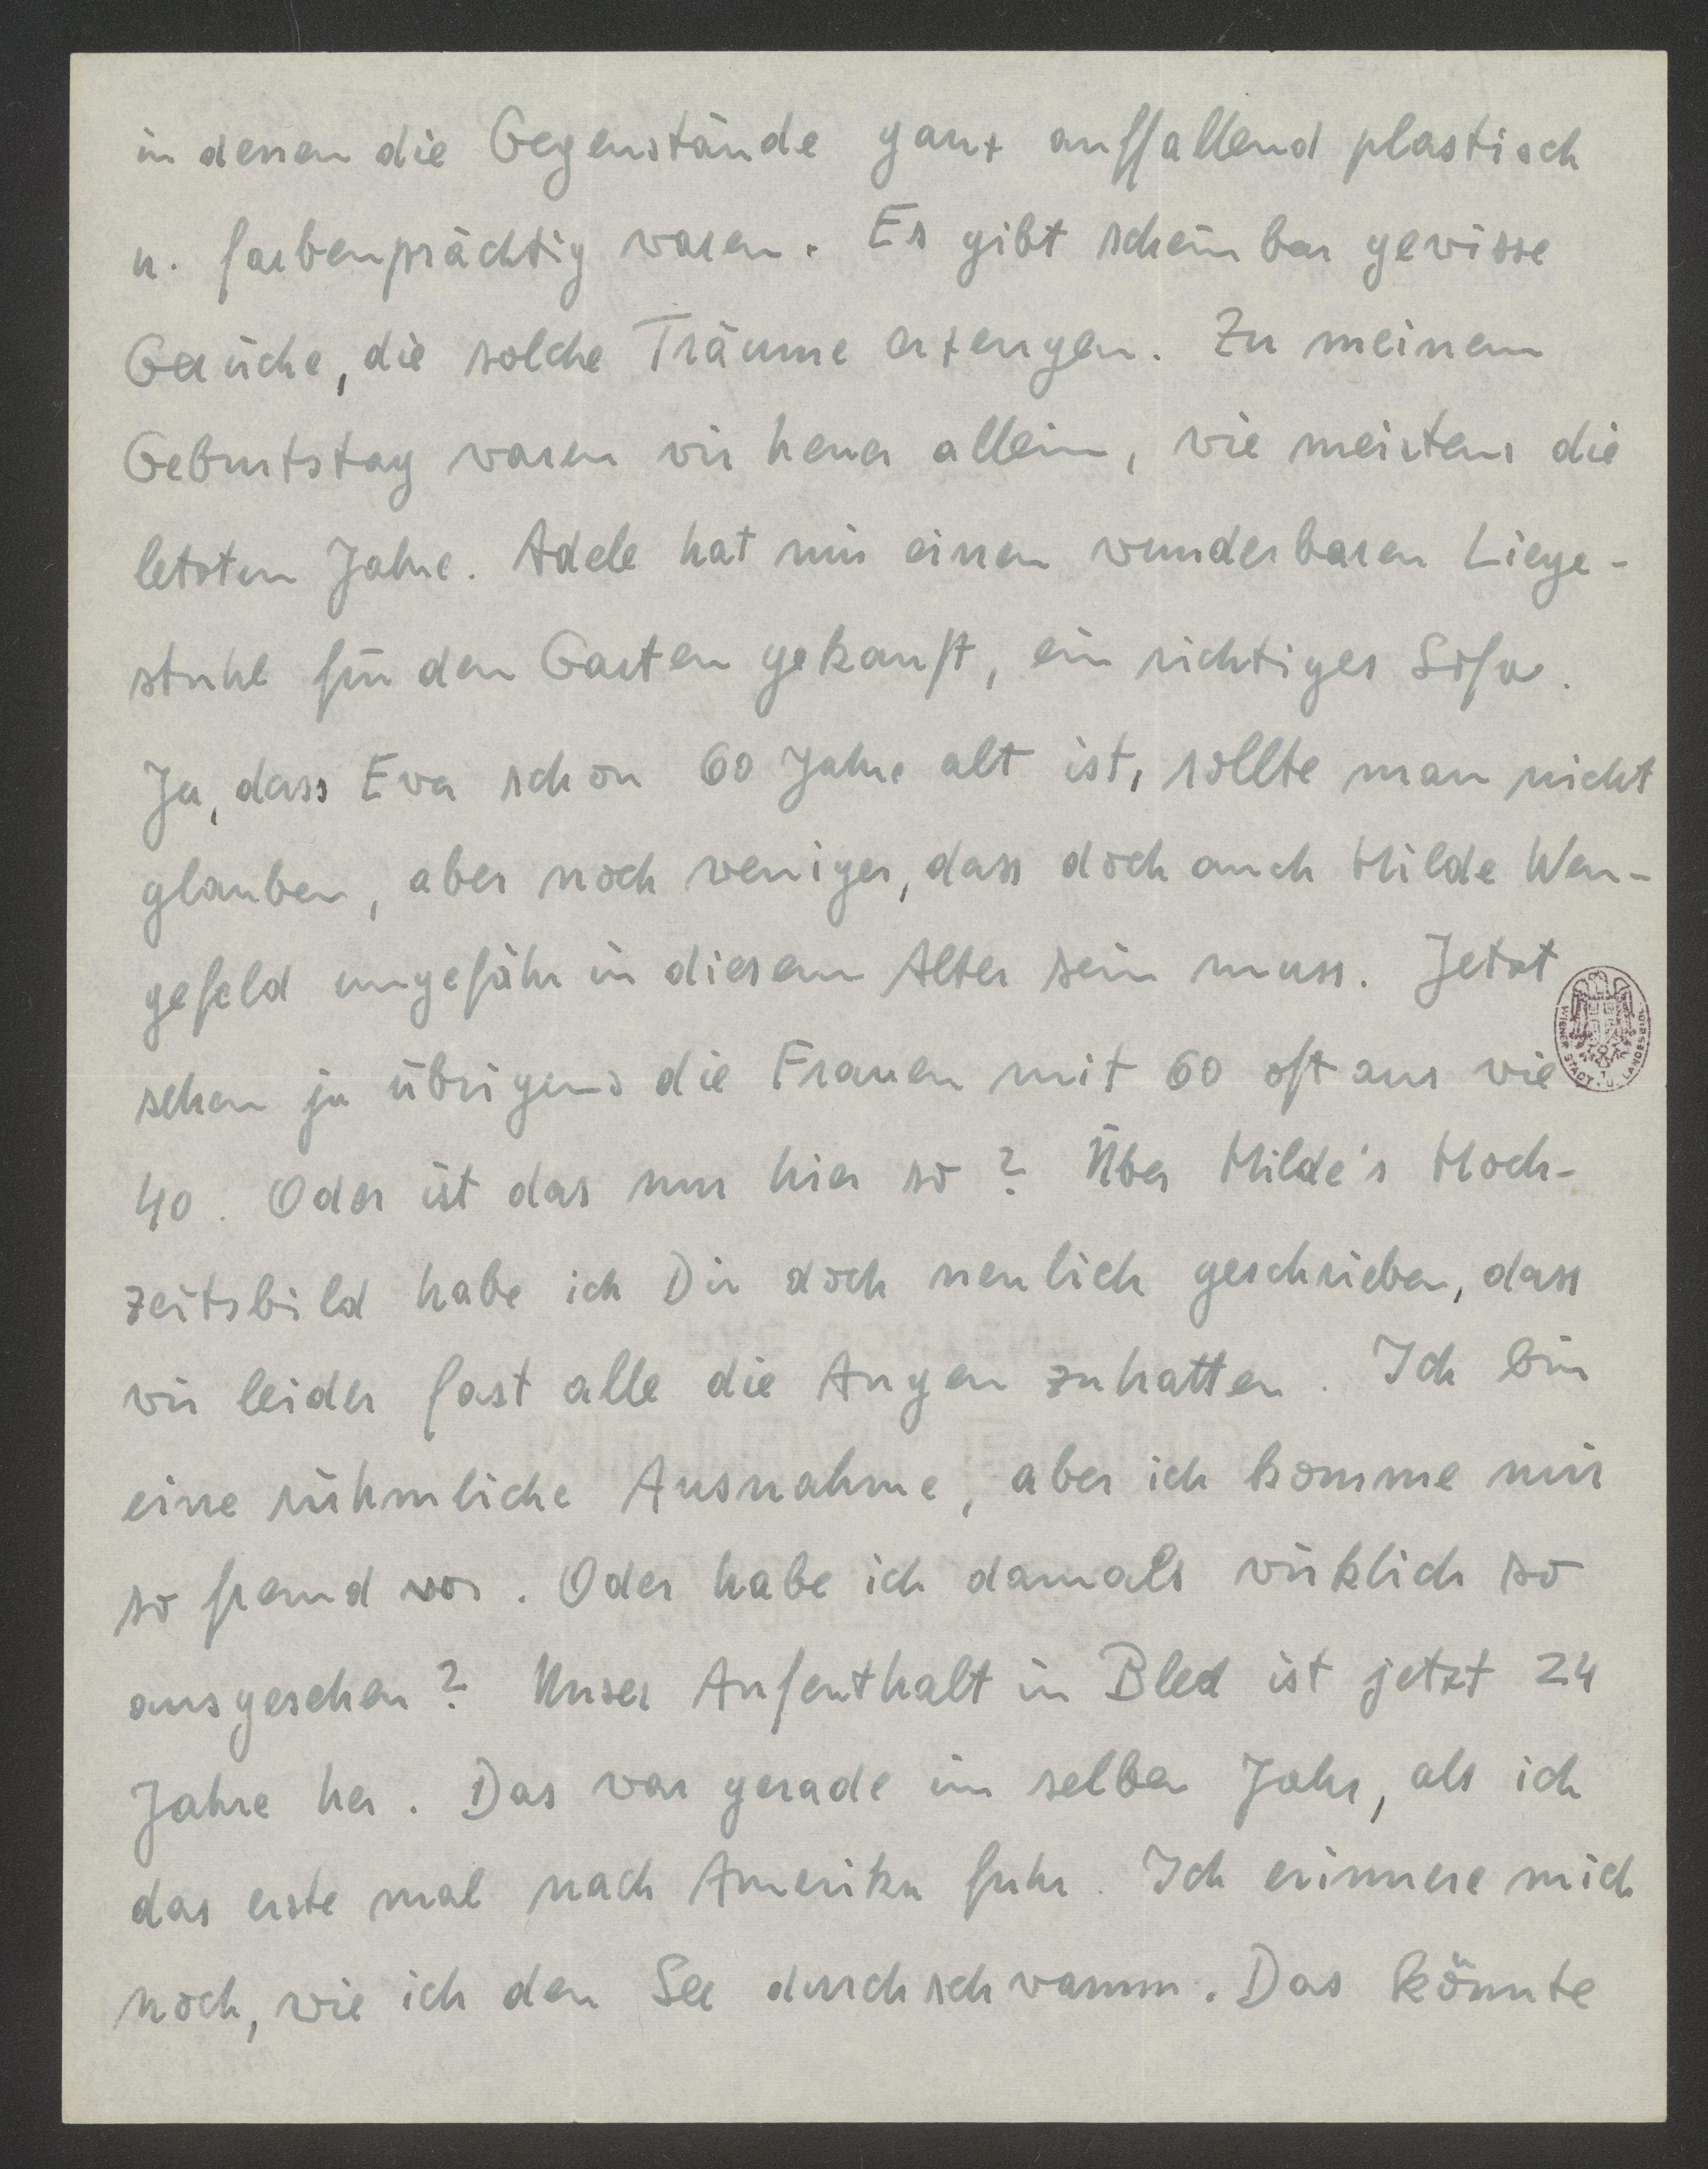 in denen die Gegenstände ganz auffallend plastisch
u. farbenprächtig waren. Es gibt scheinbar gewisse
Gerüche, die solche Träume erzeugen. Zu meinem
Geburtstag waren wir heuer allein, wie meistens die
letzten Jahre. Adele hat mir einen wunderbaren Liege-
stuhl für den Garten gekauft, ein richtiges Sofa.
Ja, dass Eva schon 60 Jahre alt ist, sollte man nicht
glauben, aber noch weniger, dass doch auch Hilde Wen-
gefeld ungefähr in diesem Alter sein muss. Jetzt
sehen ja übrigens die Frauen mit 60 oft aus wie
40. Oder ist das nur hier so? Über Hilde's Hoch-
zeitsbild habe ich Dir doch neulich geschrieben, dass
wir leider fast alle die Augen zuhatten. Ich bin
eine rühmliche Ausnahme, aber ich komme mir
so fremd vor. Oder habe ich damals wirklich so
ausgesehen? Unser Aufenthalt in Bled ist jetzt 24
Jahre her. Das war gerade im selben Jahr, als ich
das erste mal nach Amerika fuhr. Ich erinnere mich
noch, wie ich den See durchschwamm. Das könnte
WIENER STADT- U. LANDESBIBL.